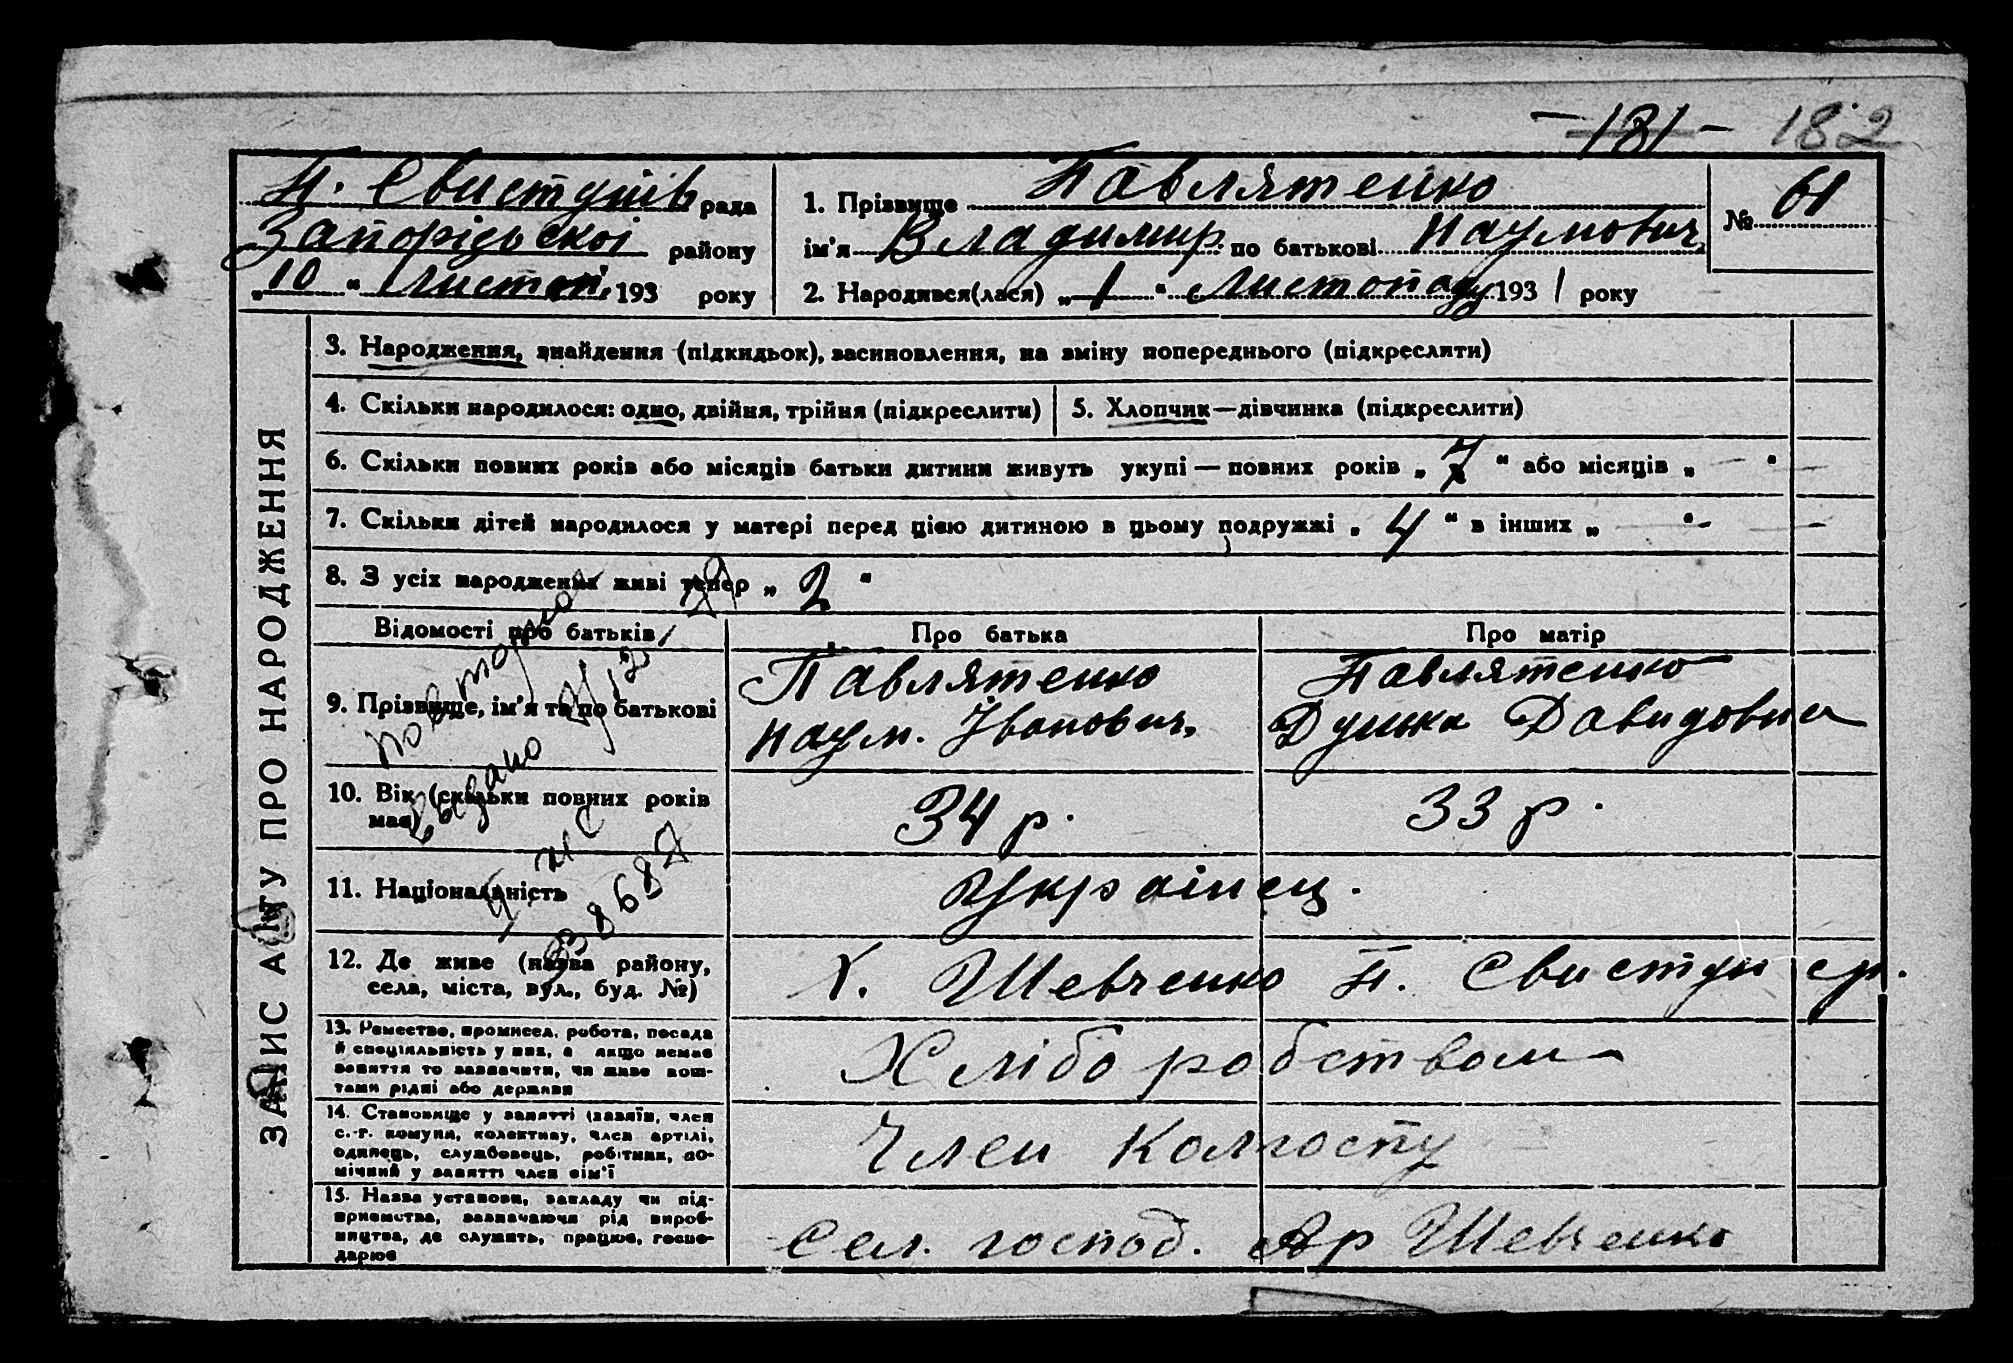 - 181 - 182
Н. Свистунів рада
Запорізької району
„10“ Листоп. 193 року
1. Прізвище Павлятенко
ім'я Владимир по батькові Наумович
2. Народився(лася) „1“ Листопаду 1931 року
№ 61
ЗАПИС АКТУ ПРО НАРОДЖЕННЯ
3. Народження, знайдення (підкидьок), засиновлення, на зміну попереднього (підкреслити)
4. Скільки народилося: одно, двійня, трійня (підкреслити)
5. Хлопчик—дівчинка (підкреслити)
6. Скільки повних років або місяців батьки дитини живуть укупі — повних років „7“ або місяців „—“
7. Скільки дітей народилося у матері перед цією дитиною в цьому подружжі „4“ в інших „—“
8. З усіх народжених живі тепер „2“
Відомості про батьків
Про батька
Про матір
9. Прізвище, ім'я та по батькові
Павлятенко
Наум. Іванович.
Павлятенко
Давидовна
10. Вік (скільки повних років
має)
34 р.
33 р.
11. Національність
Українец.
12. Де живе (назва району,
села, міста, вул., буд. №)
Х. Шевченко Н. Свистун ср.
13. Ремество, промисел, робота, посада
й спеціяльність у них, а якщо немає
заняття то зазначити, чи живе кош-
тами рідні або держави
Хліборобством
14. Становище у занятті (хазяїн, член
с.-г. комуни, колективу, член артілі,
одинець, службовець, робітник, по-
мічний у занятті член сім'ї
Член Колгоспу
15. Назва установи, закладу чи під-
приємства, зазначаючи рід вироб-
ництва, де служить, працює, госпо-
дарює
Сел. господ. Ар Шевченко
повторно
выдано